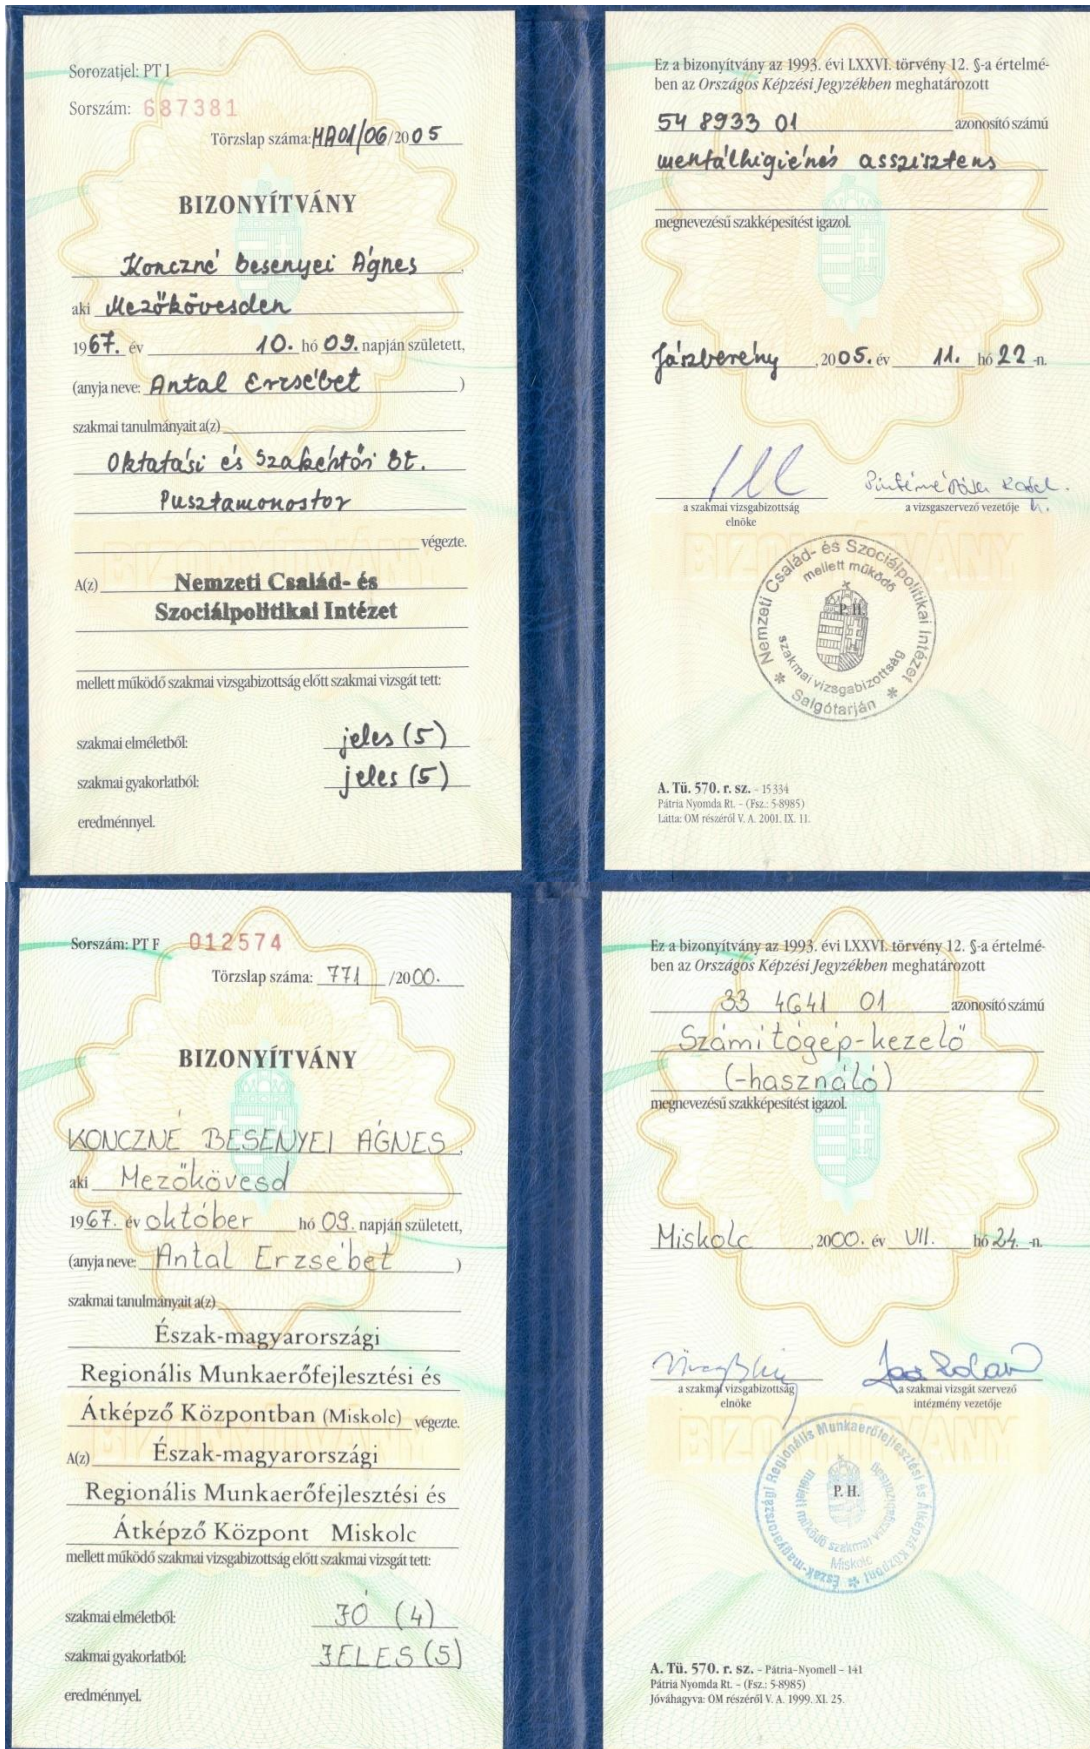 Sorozatjel: PT I
Sorszám: 687381
Törzslap száma: MA01/06/2005
BIZONYÍTVÁNY
Konczné Besenyei Ágnes
aki Mezőkövesden
1967. év 10. hó 09. napján született,
(anyja neve: Antal Erzsébet )
szakmai tanulmányait a(z)
Oktatási és Szakértői Bt.
Pusztamonostor
végezte.
A(z) Nemzeti Család- és
Szociálpolitikai Intézet
mellett működő szakmai vizsgabizottság előtt szakmai vizsgát tett:
szakmai elméletből: jeles (5)
szakmai gyakorlatból: jeles (5)
eredménnyel.
Ez a bizonyítvány az 1993. évi LXXVI. törvény 12. §-a értelmé-
ben az Országos Képzési Jegyzékben meghatározott
54 8933 01 azonosító számú
mentálhigiénés asszisztens
megnevezésű szakképesítést igazol.
Jászberény, 2005. év 11. hó 22-n.
a szakmai vizsgabizottság
elnöke
a vizsgaszervező vezetője
Nemzeti Család- és Szociálpolitikai Intézet
mellett működő
P. H.
szakmai vizsgabizottság
* Salgótarján *
A. Tü. 570. r. sz. - 15334
Pátria Nyomda Rt. – (Fsz.: 5-8985)
Látta: OM részéről V. A. 2001. IX. 11.
Sorszám: PT F 012574
Törzslap száma: 771 /2000.
BIZONYÍTVÁNY
KONCZNÉ BESENYEI ÁGNES,
aki Mezőkövesd
1967. év október hó 09. napján született,
(anyja neve: Antal Erzsébet )
szakmai tanulmányait a(z)
Észak-magyarországi
Regionális Munkaerőfejlesztési és
Átképző Központban (Miskolc) végezte.
A(z) Észak-magyarországi
Regionális Munkaerőfejlesztési és
Átképző Központ Miskolc
mellett működő szakmai vizsgabizottság előtt szakmai vizsgát tett:
szakmai elméletből: JÓ (4)
szakmai gyakorlatból: JELES (5)
eredménnyel.
Ez a bizonyítvány az 1993. évi LXXVI. törvény 12. §-a értelmé-
ben az Országos Képzési Jegyzékben meghatározott
33 4641 01 azonosító számú
Számítógép-kezelő
(-használó)
megnevezésű szakképesítést igazol.
Miskolc, 2000. év VII. hó 24. -n.
a szakmai vizsgabizottság
elnöke
a szakmai vizsgát szervező
intézmény vezetője
Észak-magyarországi Regionális Munkaerőfejlesztési és Átképző Központ *
mellett működő szakmai vizsgabizottság
P. H.
Miskolc
A. Tü. 570. r. sz. – Pátria-Nyomell – 141
Pátria Nyomda Rt. – (Fsz.: 5-8985)
Jóváhagyva: OM részéről V. A. 1999. XI. 25.